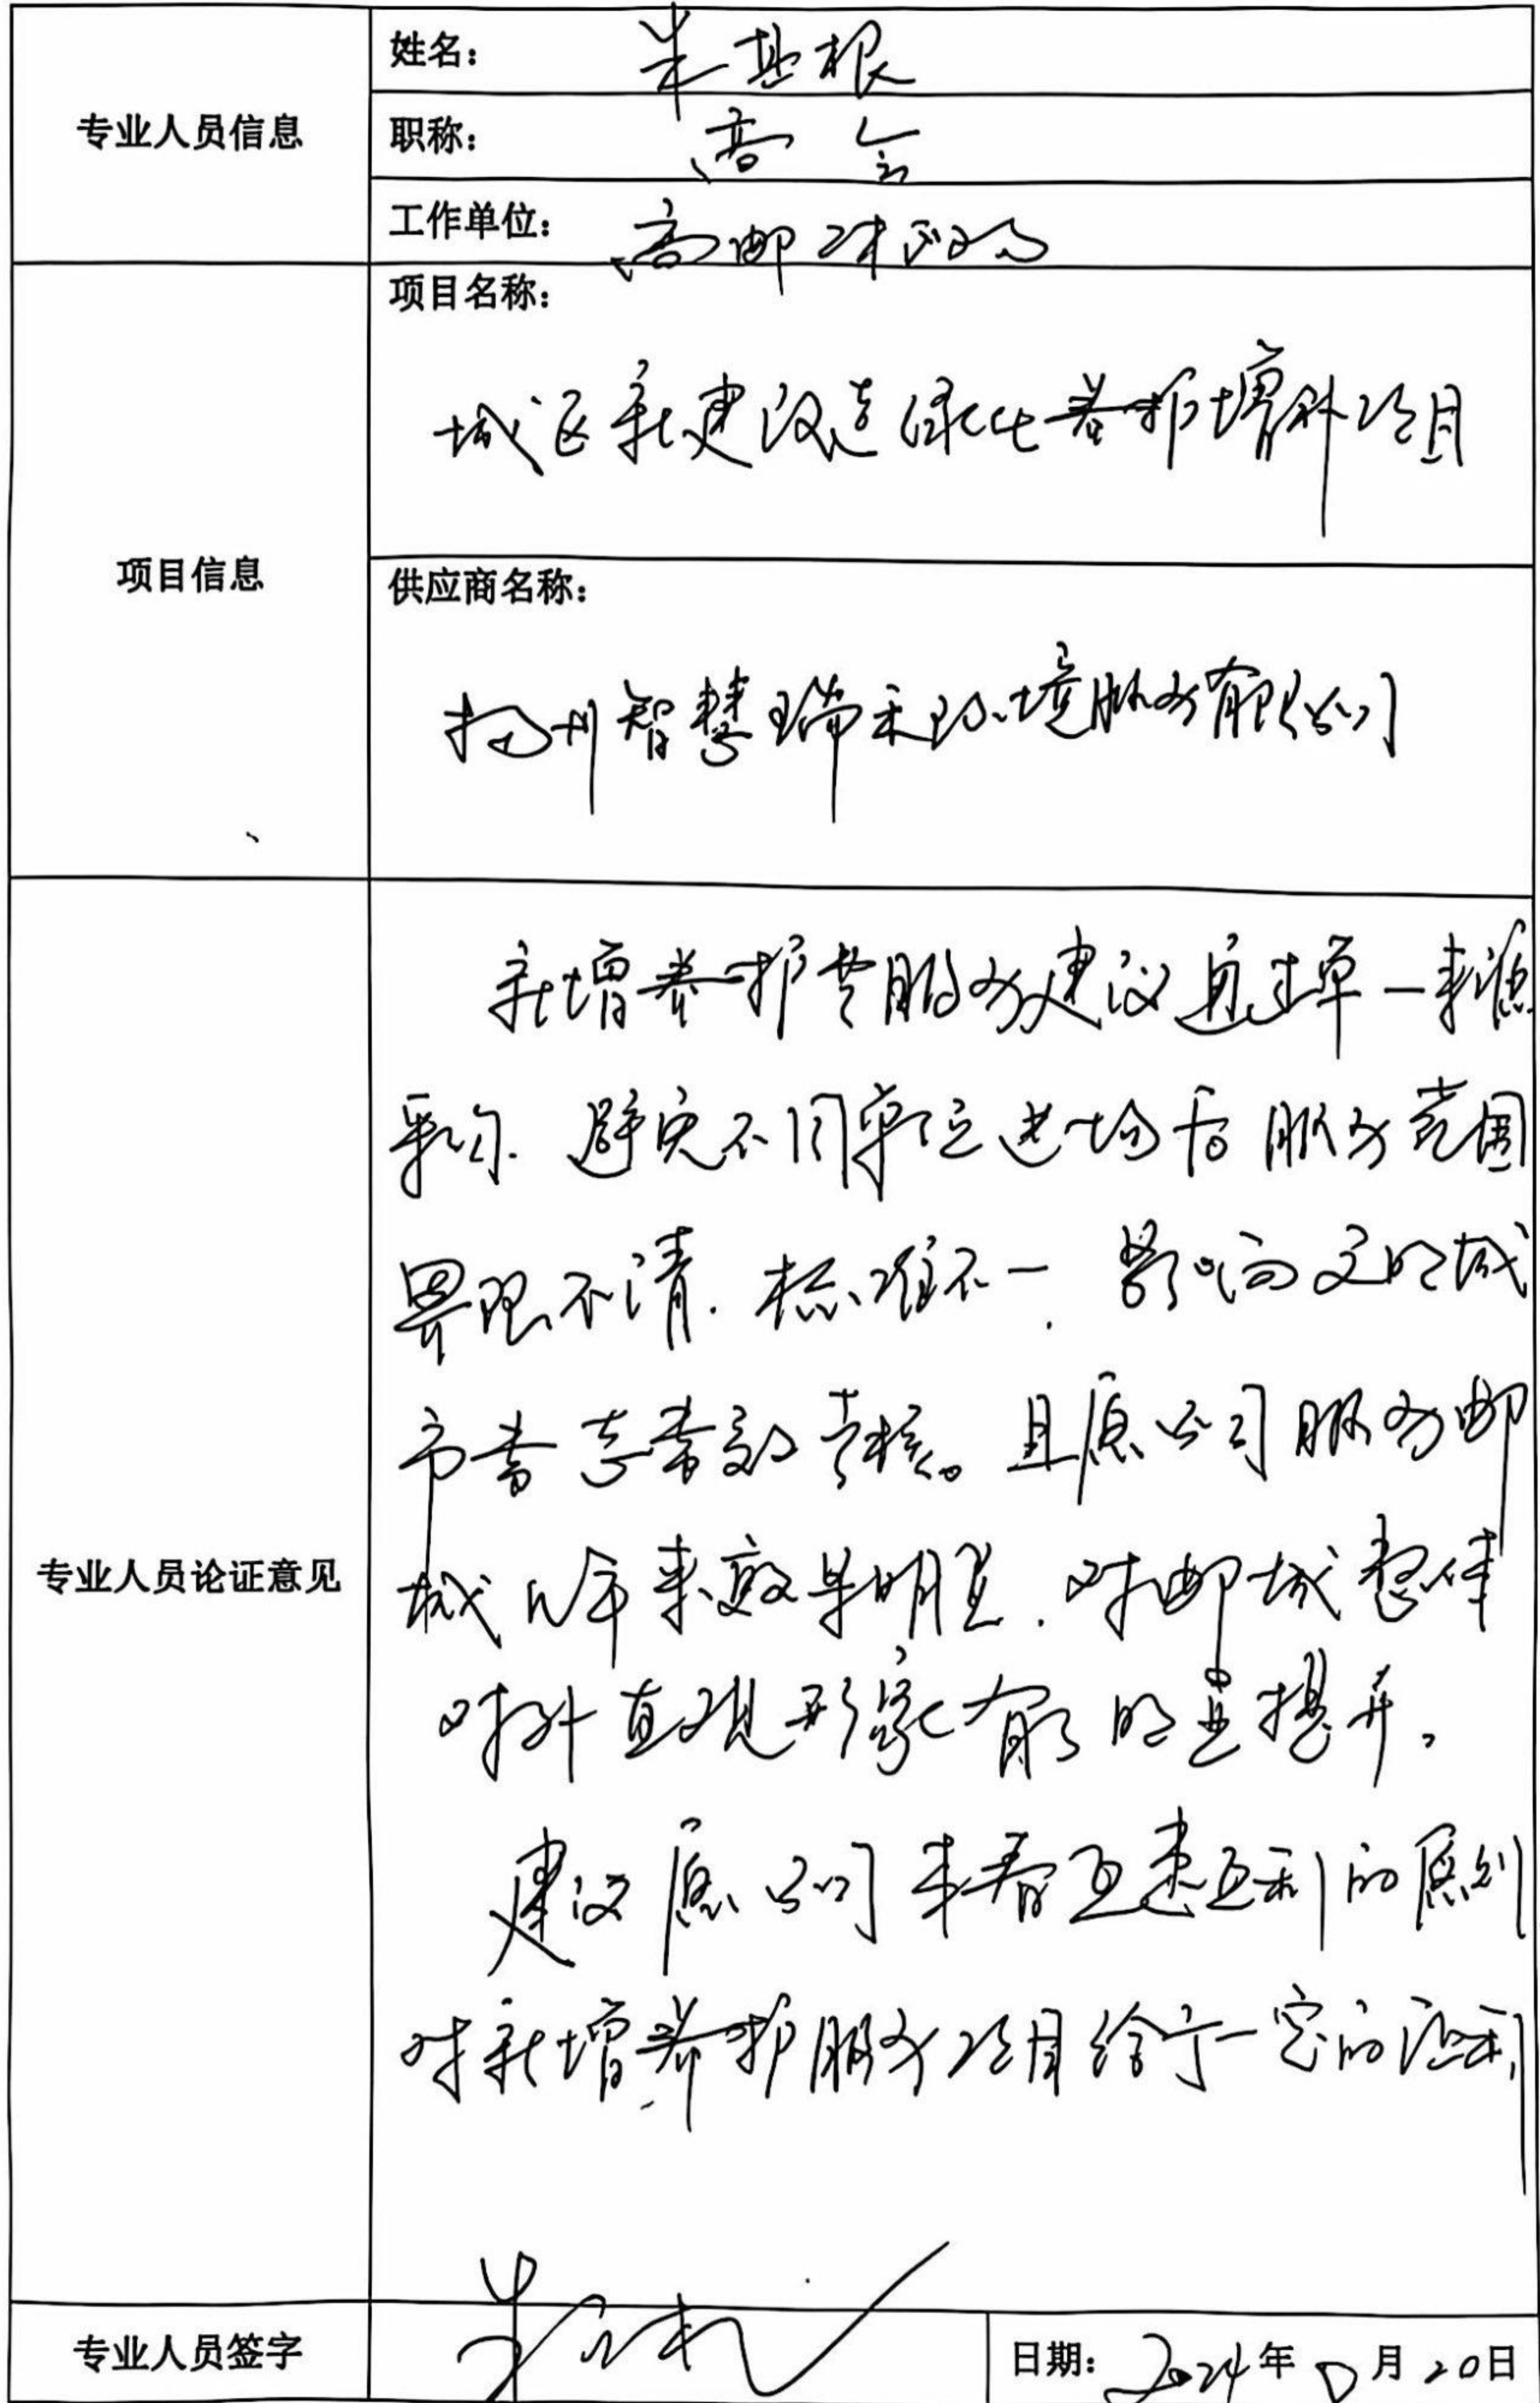 专业人员信息
姓名：朱基根
职称：高会
工作单位：高邮财政局
项目信息
项目名称：
城区新建改造绿化养护增补项目
供应商名称：
扬州智慧瑞禾环境服务有限公司
专业人员论证意见
新增养护类服务建议通过单一来源
采购. 避免不同单位进场后服务范围
界限不清. 标准不一. 影响文明城
市常态常效考核。且原公司服务邮
城几年来效果明显. 对邮城整体
对外直观形象有了明显提升。
建议原公司本着互惠互利的原则
对新增养护服务项目给予一定的让利
专业人员签字
日期：2024年 月20日